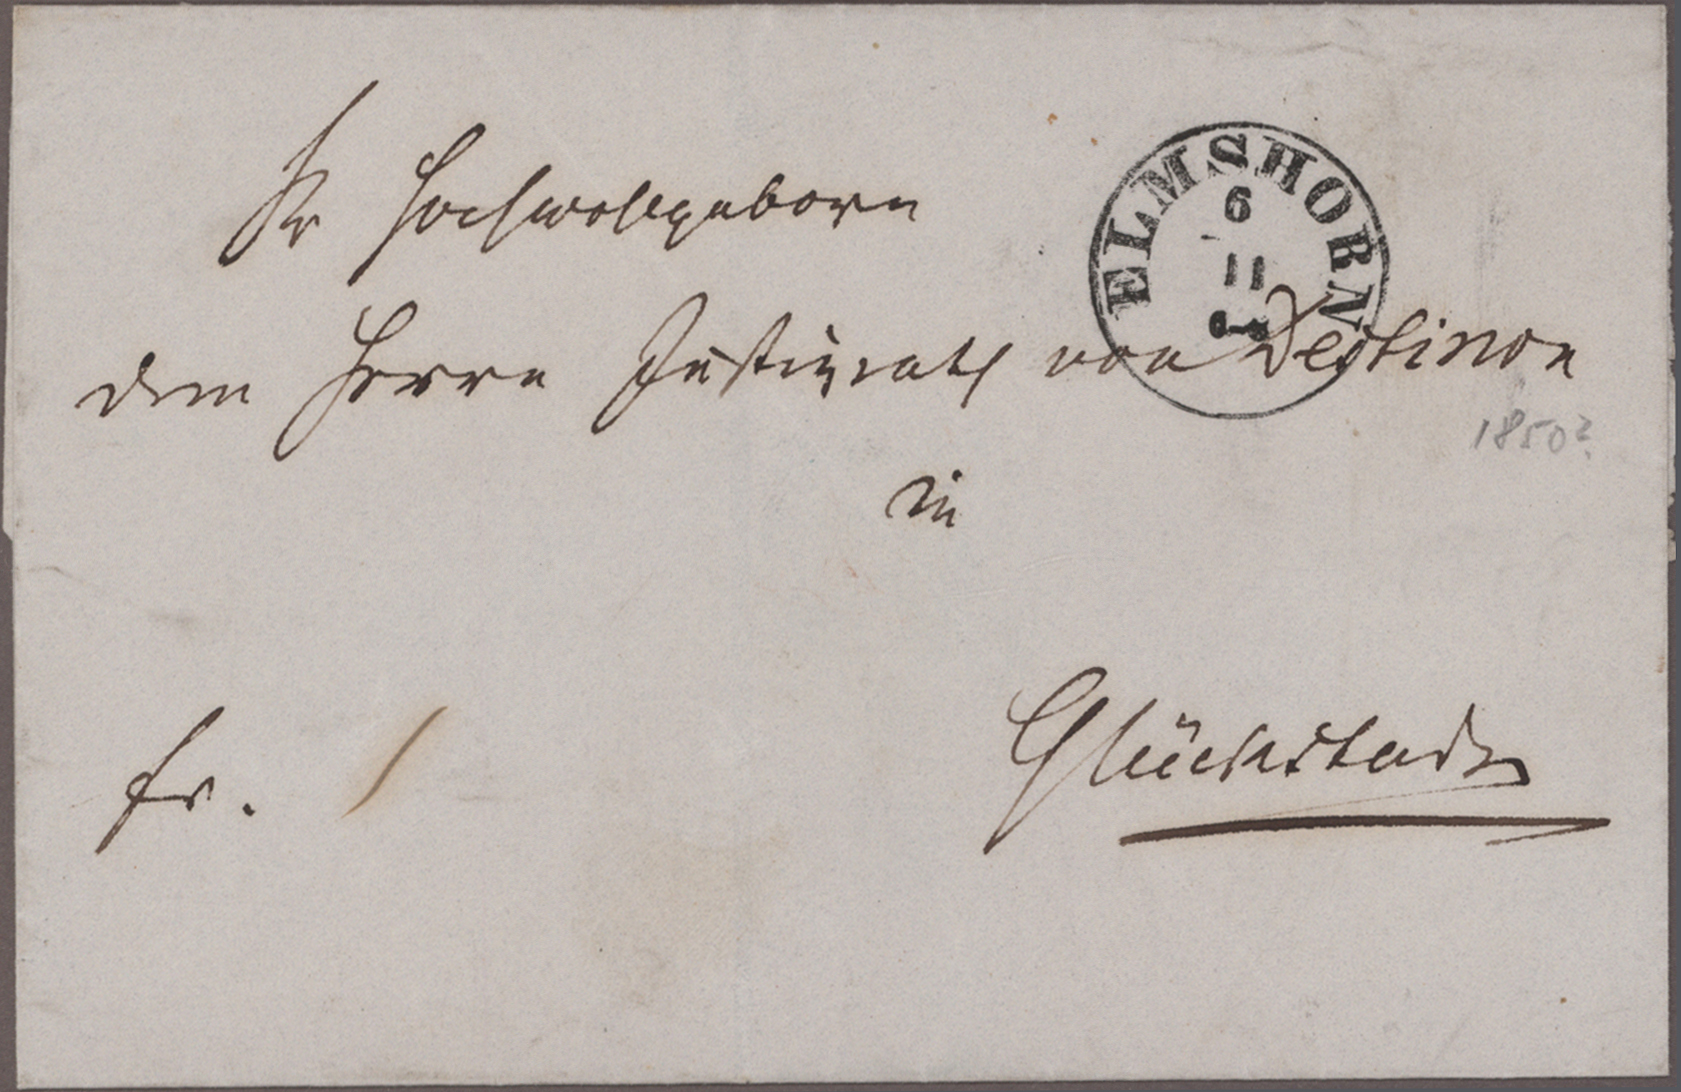 Sr Hochwolgeborn
dem Herrn Justizrath von Destinon
in
Glückstadt
fr.
ELMSHORN
6
11
1850?